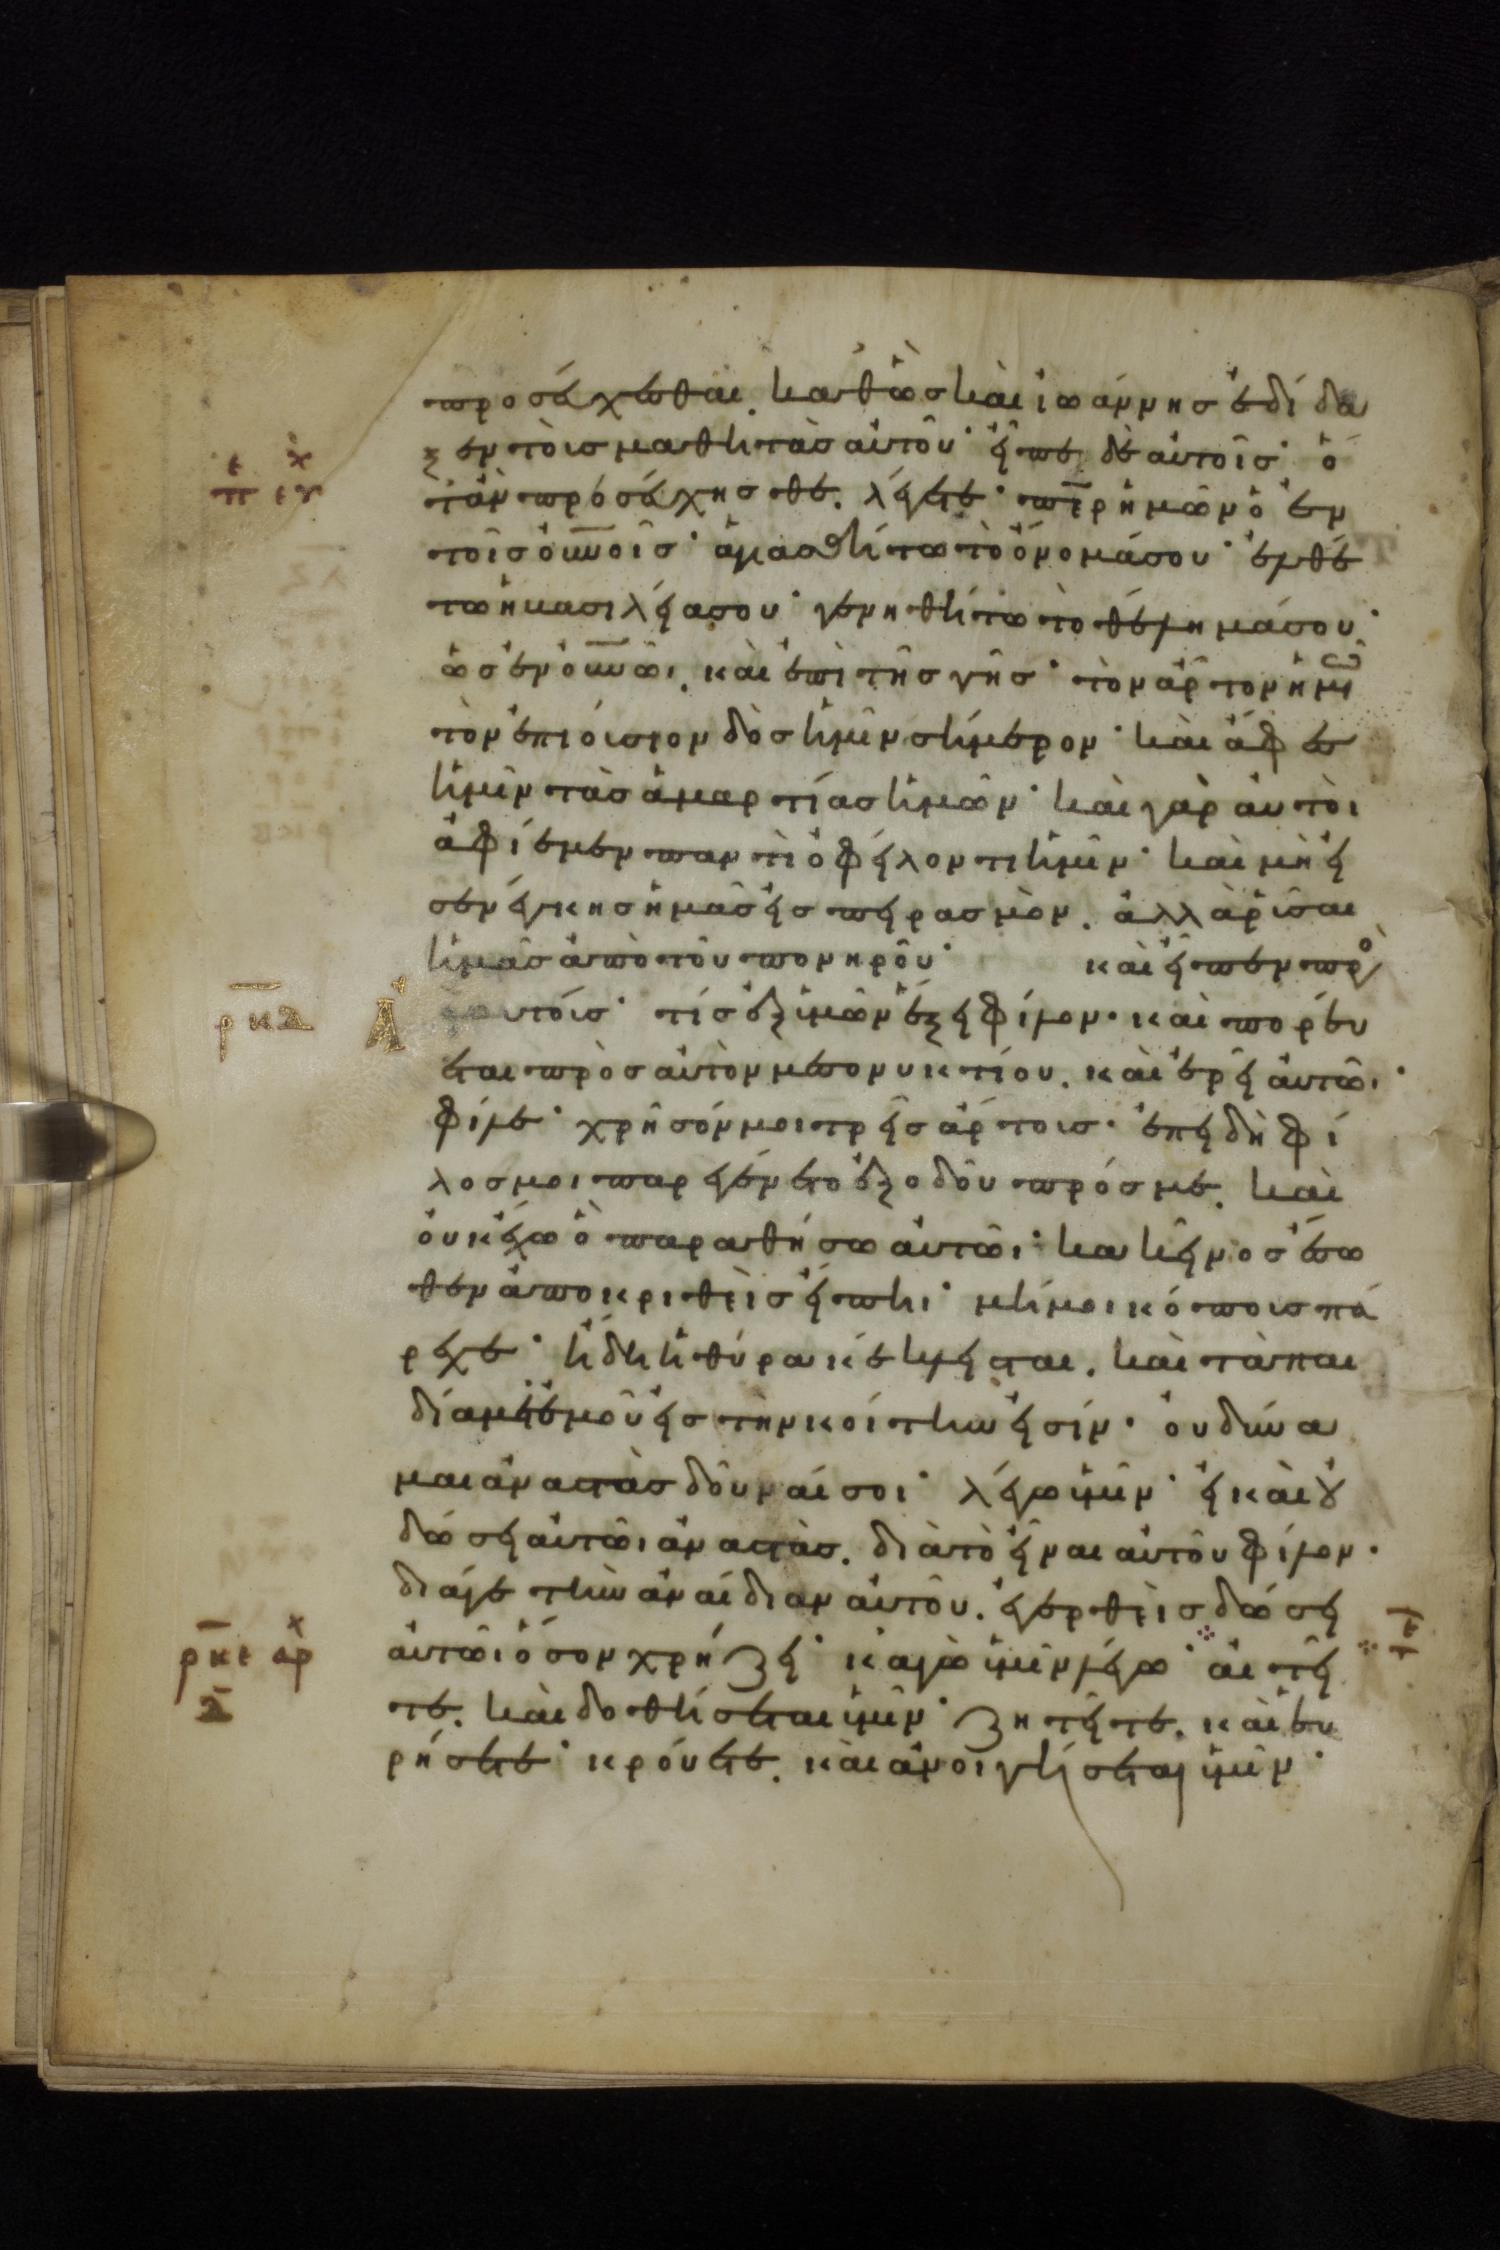 προσεύχεσθαι. καθὼς καὶ ἰωάννησ ἐδίδα
ξεν τοὺσ μαθητὰσ αὐτοῦ· εἶπε δὲ αὐτοῖσ· ὅ
ταν προσεύχησθε. λέγετε· περ ἡμῶν ὁ ἐν
τοῖσ οὐνοῖσ· ἁγιασθήτω τὸ ὄνομά σου· ἐλθέ
τω ἡ βασιλεία σου· γενηθήτω τὸ θέλημά σου·
ὡσ ἐν οὐνῶι. καὶ ἐπὶ τῆσ γῆσ· τὸν ἄρτον ἡμῶ
τὸν ἐπιούσιον δὸσ ἡμῖν σήμερον· καὶ ἄφεσ
ἡμῖν τὰσ ἁμαρτίασ ἡμῶν· καὶ γὰρ αὐτοὶ
ἀφίεμεν παντὶ ὀφείλοντι ἡμῖν· καὶ μὴ εἰ
σενέγκησ ἡμᾶσ εἰσ πειρασμὸν. ἀλλὰ ῥῦσαι
ἡμᾶσ ἀπὸ τοῦ πονηροῦ· καὶ εἶπεν πρὸ
αυτούσ· τίσ ἐξ ὑμῶν ἕξει φίλον· καὶ πορεύ
εται πρὸσ αὐτὸν μεσονυκτίου. καὶ ἐρεῖ αὐτῶι·
φίλε· χρῆσόν μοι τρεῖσ ἄρτουσ· ἐπειδὴ φί
λοσ μοι παρεγένετο ἐξ ὁδοῦ πρόσ με. καὶ
οὐκ ἔχω ὃ παραθήσω αὐτῶι· κακεῖνοσ ἔσω
θεν ἀποκριθεὶσ εἴπηι· μή μοι κόπουσ πά
ρεχε· ἤδη ἡ θύρα κέκλεισται. καὶ τὰ παι
δία μετ ἐμοῦ εἰσ τὴν κοίτην εἰσίν· οὐ δύνα
μαι ἀναστὰσ δοῦναί σοι· λέγω ὑμῖν· εἰ καὶ οὐ
δώσει αὐτῶι ἀναστὰσ. διὰ τὸ εἶναι αὐτοῦ φίλον·
διά γε τὴν ἀναίδιαν αὐτοῦ. ἐγερθεὶσ δώσει
αὐτῶι ὅσον χρήζει· κἀγὼ ὑμῖν λέγω· αἰτεῖ
τε. καὶ δοθήσεται ὑμῖν· ζητεῖτε. καὶ εὑ
ρήσετε· κρούετε. καὶ ἀνοιγήσεται ὑμῖν·
ρκδ
ρκε